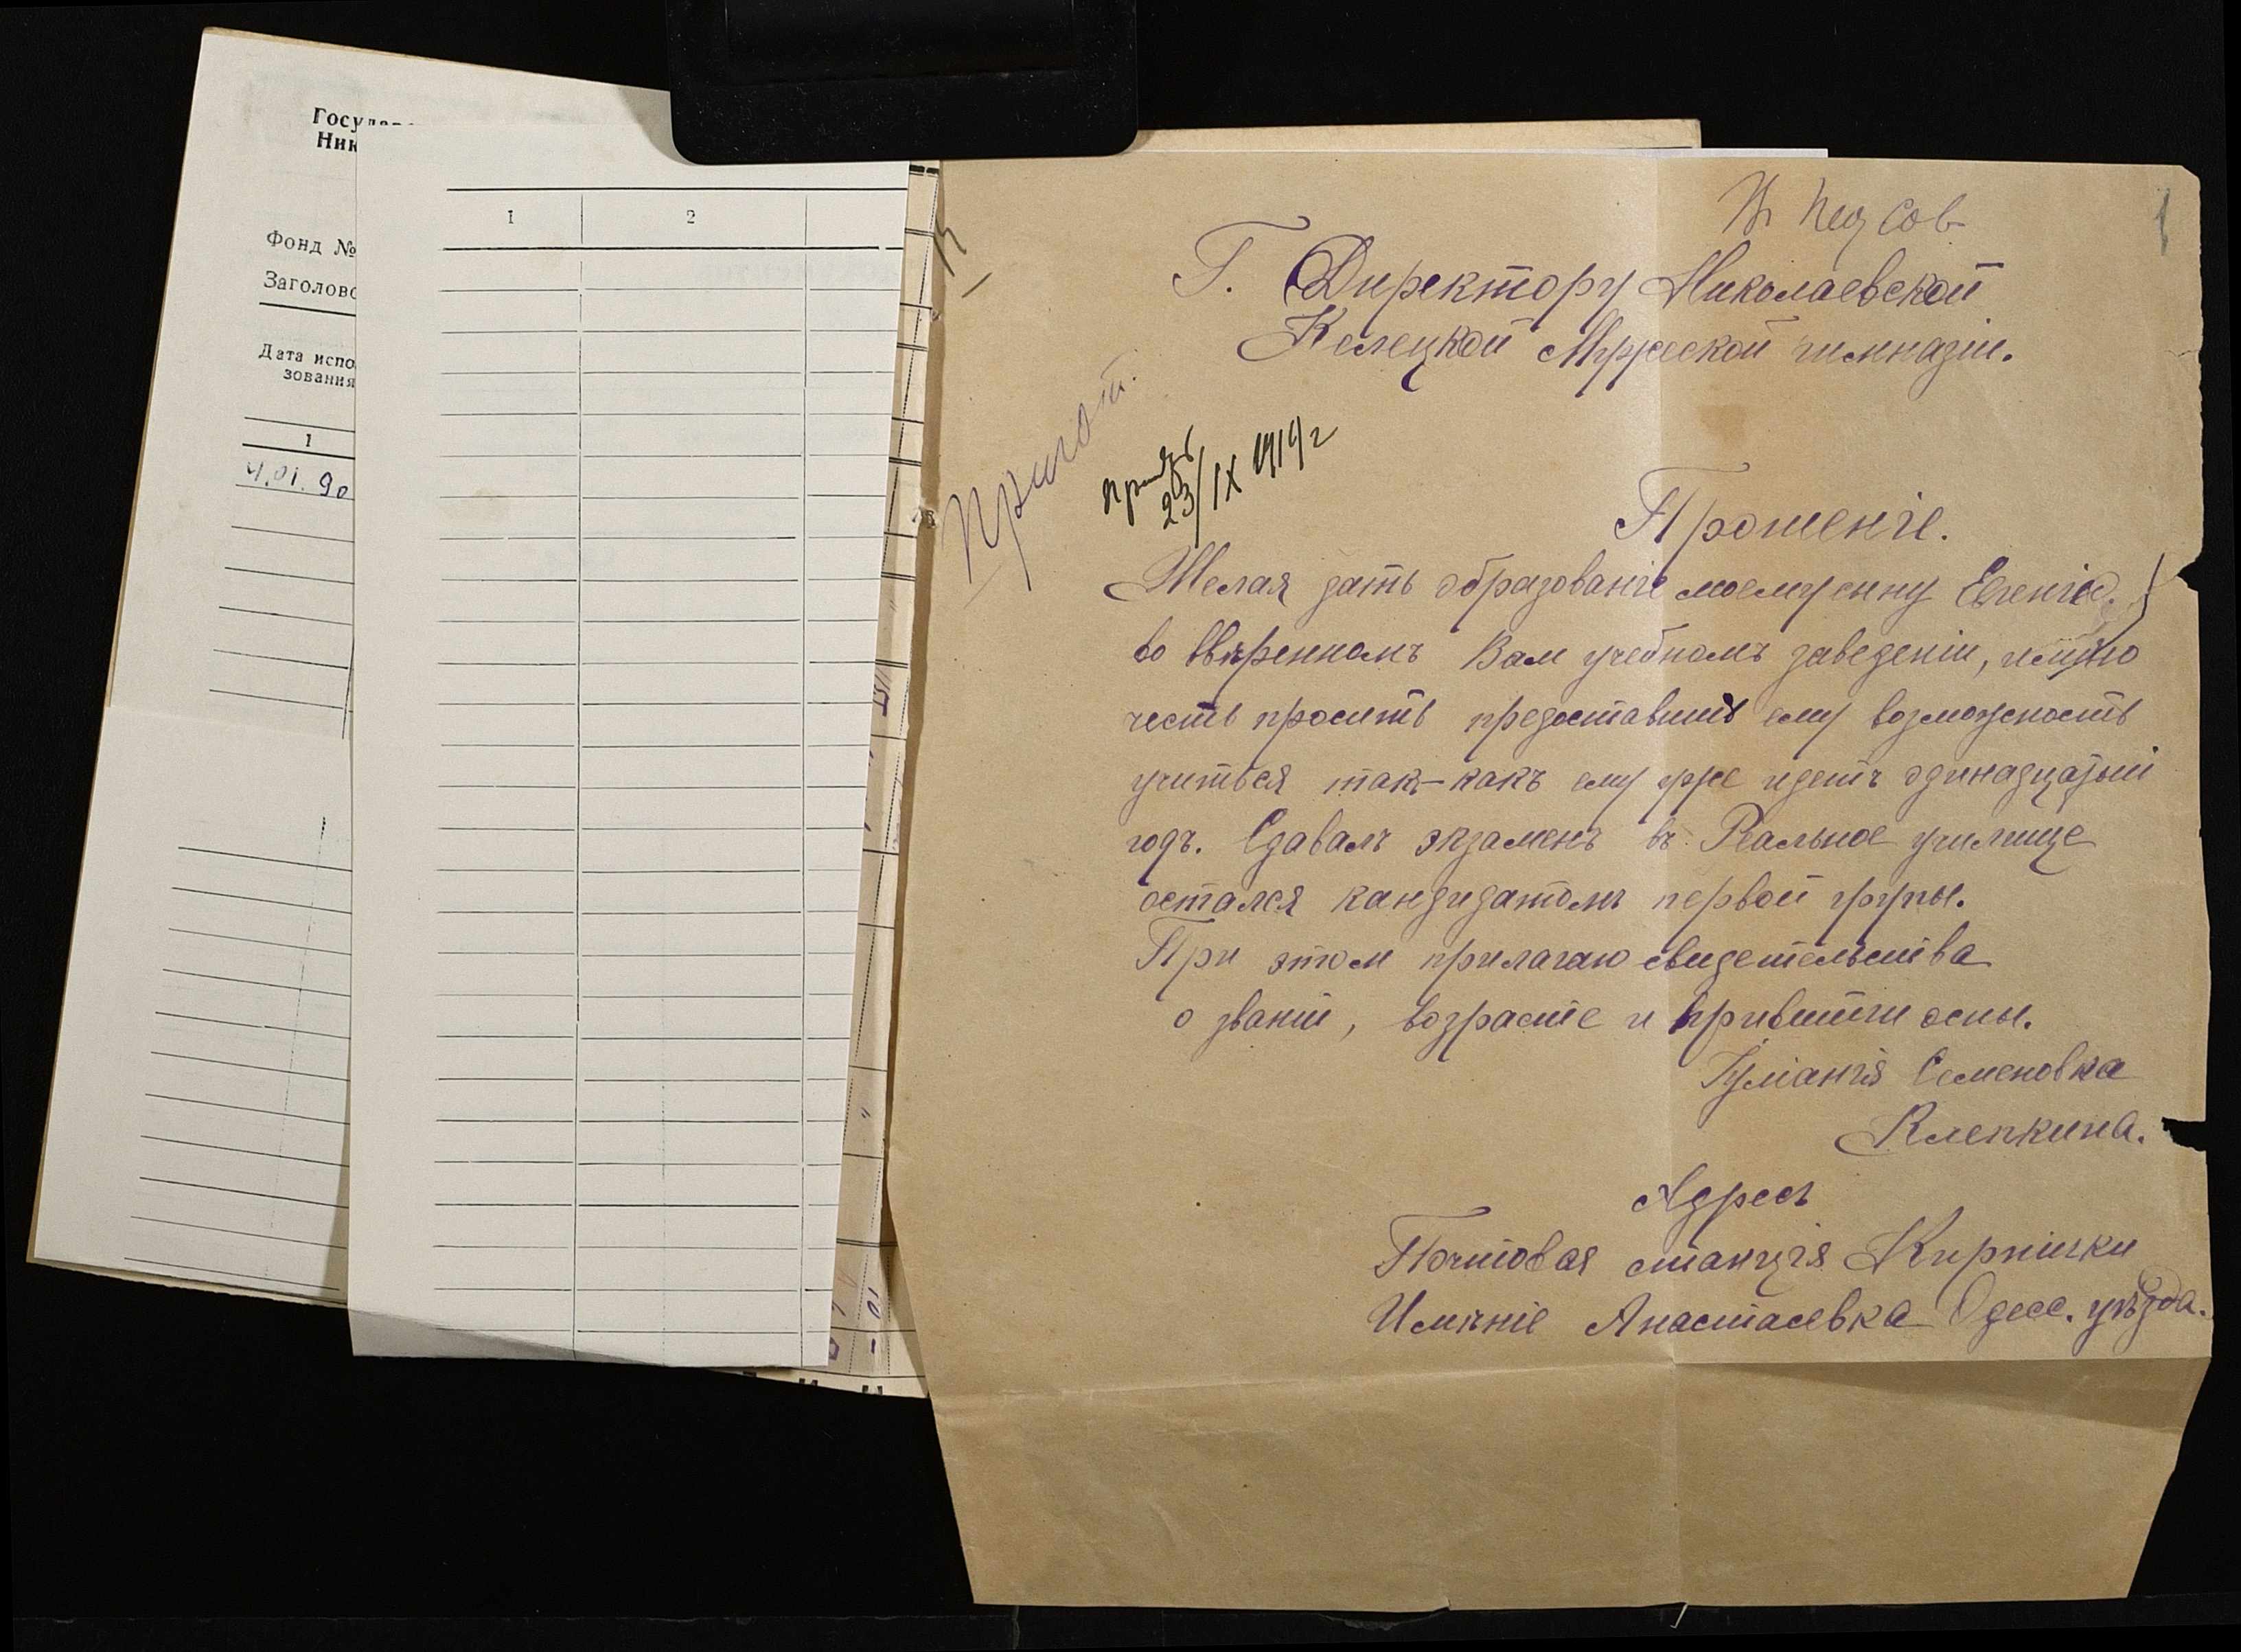 Госуда
Ник
Фонд №
Заголово
Дата испо
зования
1
4.01.90
1 2
1
Пед Сов
Г. Директору Николаевской
Келецкой Мужеской гимназіи.
Пригот.
23/IX 1919 г
Прошеніе.
Желая дать образованіе моему сыну Евгенію.
во ввѣренномъ Вам учебномъ заведеніи, имѣю
честь просить предоставить ему возможность
учиться так-какъ ему уже идетъ одинадцатый
годъ. Сдавалъ экзаменъ въ Реальное училище
остался кандидатомъ первой групы.
При этом прилагаю свидетельства
о званіи, возрасте и привитіи оспы.
Іуліанія Семеновка
Клепкина.
Адресъ
Почтовая станція Кирпички
Имѣніе Анастасевка Одесс. уѣзда.